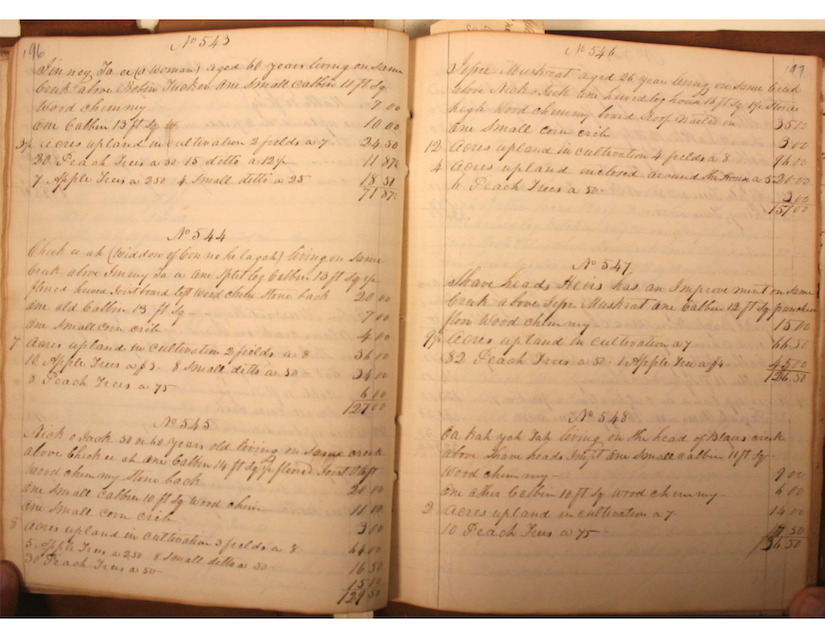 196
No 543
Jinney Ta ee (a Woman) aged 60 years living on same
Creek above Robin Tucker One Small Cabbin 11 ft Sq
Wood chimmy 7 00
One Cabbin 13 ft Sq 10 00
3½ acres upland in cultivation 2 fields a 7 24.50
20 Peach Trees a 50 15 ditto a 12½ 11 87½
7 Apple Trees a 250 4 Small ditto a 25 18 51
71 87½
No 544
Check u ah (Widdow of Con no he lagah) living on same
Creek above Jinny Ta ee One Split log Cabbin 13 ft Sq
floored hewed Joist board loft Wood chim Stone back 20 00
One old Cabbin 13 ft Sq 7 00
One Small corn crib 4 00
7 Acres upland in Cultivation 2 fields a 8 56 00
10 Apple Trees a $3. 8 Small ditto a 50 34 00
8 Peach Trees a 75 6 00
127 00
No 545
Nick o Jack 50 or 60 years old living on same creek
above Check u ah One Cabbin 14 ft Sq floored Joist & loft
Wood chimmy Stone back 20 00
One Small Cabbin 10 ft Sq Wood chim 11 00
One Small corn crib 3 00
8 Acres upland in cultivation 3 fields a 8 64 00
5 Apple Trees a 250 8 Small ditto a 50 16 50
30 Peach Trees a 50 15 00
129 50
197
No 546
Muskrat aged 26 year living on same Creek
above Nick o Jack One hewed log house 16 ft Sq Stories
high Wood chimmy board Roof nailed on 35 00
One Small corn crib 3 00
12 Acres upland in cultivation 4 fields a 8 96 00
4 Acres upland inclosed around the House a 5 20 00
6 Peach Trees a 50 3 00
157 00
No 547
Shave heads Heirs has an Improvement on same
Creek above Muskrat One Cabbin 12 ft Sq puncheon
floor Wood chimmy 15 00
9½ Acres upland in cultivation a 7 66 50
82 Peach Trees a 50 1 Apple Tree a $4 45 00
126 50
No 548
Oa kah yah Tah living on the head of creek
above Shave heads One Small Cabbin 11 ft Sq
Wood chimmy 9 00
One other Cabbin 10 ft Sq Wood chimmy 6 00
2 Acres upland in cultivation a 7 14 00
10 Peach Trees a 75 7 50
36 50